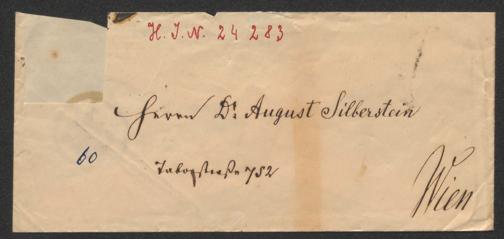 H. I. N. 24 283
Herrn Dr. August Silberstein
60
Taborstraße 752
Wien